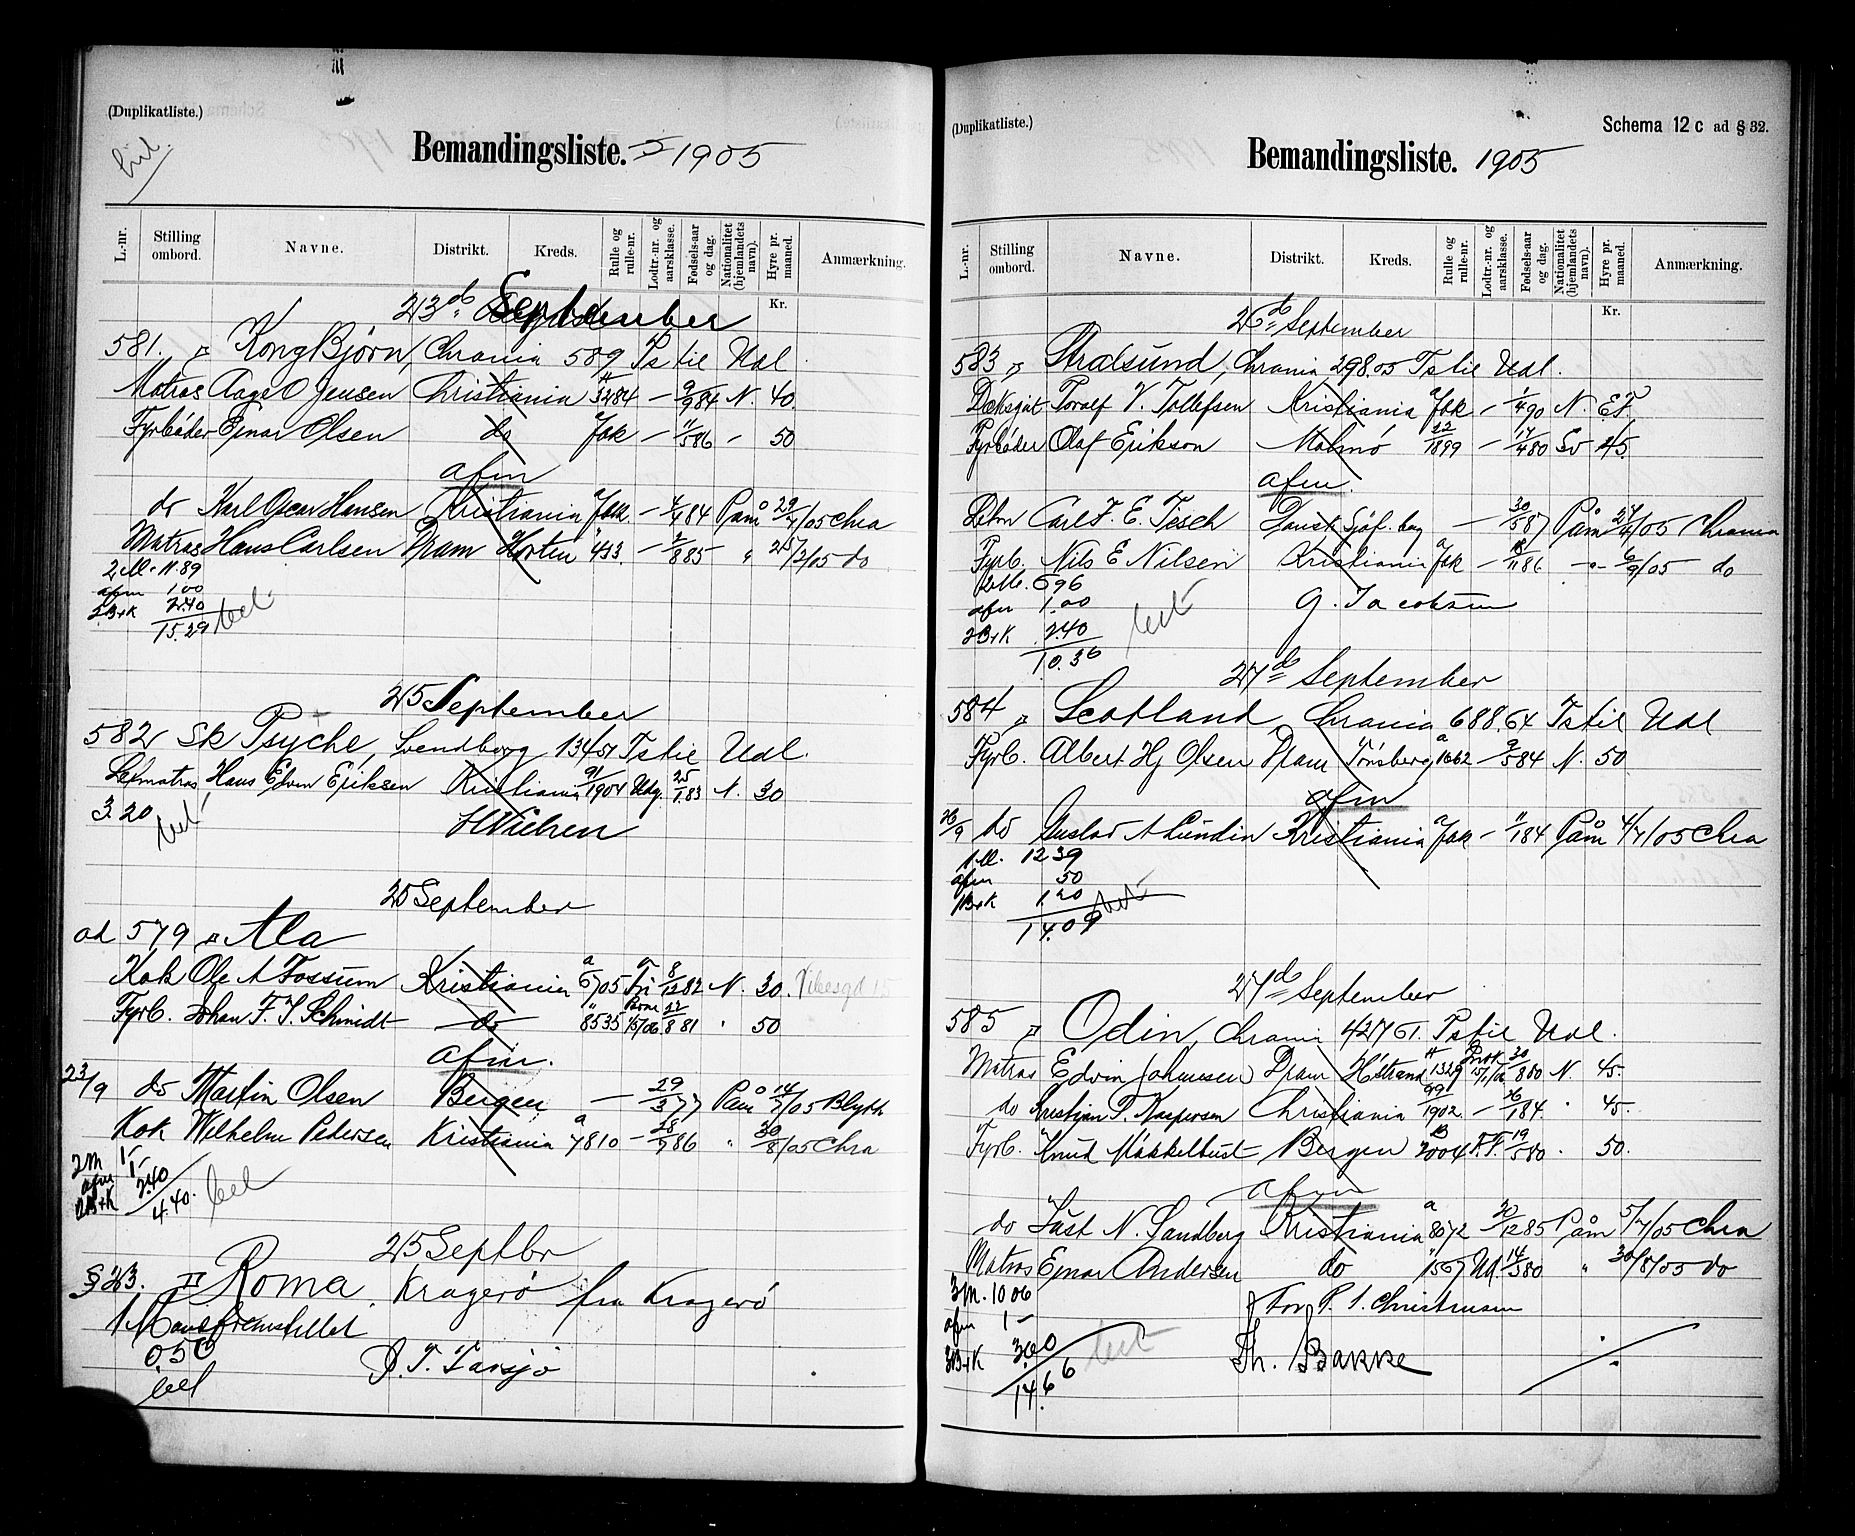 (Duplikatliste.)
Bemandingsliste. 1905
L.-nr. Stilling ombord. Navne. Distrikt. Kreds. Rulle og rulle-nr. Lodtr.-nr. og aarsklasse. Fødsels-aar og dag. Nationalitet (hjemlandets navn). Hyre pr. maaned. Anmærkning.
Kr.
23de September
581. Kong Bjørn, Chrania 589 Ts til Udl
Matros Aage O Jensen Christiania 3284 – 9/9 84 N. 40.
Fyrbøder Ejnar Olsen do Jok – 11/5 86 – 50
afm
do Karl Oscar Hansen Kristiania Jok – 4/4 84 Påm 29/7/05 Chra
Matros Hans Carlsen Dram Horten 433. – 2/8 85 " 25/2/05 do
2 M. 11.89
afm 1.00
2 B+K 2.40
15.29
25 September
582 Sk Psyche, Svendborg 134/51 Ts til Udl.
Letmatros Hans Edvin Eriksen Kristiania 91/1904 Udg. 25/1.83 N. 30
3.20
H Nielsen
25 September
ad 579 Ala
Kok Ole A Fossum Kristiania 6705 Fri 8/12 82 N. 30.
Fyrb. Johan F. J. Schmidt do 8535 15/06 22/8 81 " 50
afm.
23/9 do Martin Olsen Bergen – 29/3 77 Påm 14/7/05 Blyth
Kok Wilhelm Pedersen Kristiania 7810 – 28/7 86 " 30/8/05 Chra
2 M 1-
afm 1-
2 B+K 2.40
4.40.
25 Septbr
§ 23. Roma. Kragerø fra Kragerø
1 Mand fremstillet
0.50
P. T. Tarsjø
(Duplikatliste.)
Schema 12 c ad § 32.
Bemandingsliste. 1905
L.-nr. Stilling ombord. Navne. Distrikt. Kreds. Rulle og rulle-nr. Lodtr.-nr. og aarsklasse. Fødsels-aar og dag. Nationalitet (hjemlandets navn). Hyre pr. maaned. Anmærkning.
Kr.
26de September
583 Stralsund, Chrania 298.05 Ts til Udl.
Dæksgut Toralf V. Tollefsen Kristiania Jok – 1/4 90 N. E.F.
Fyrbøder Olaf Erikson Malmø 22/1899 – 17/4 80 Sv 45.
afm.
Carl F. E. Tesch Dansk Sjöf. bog – 30/5 87 Påm 27/4/05 Chrania
Fyrb. Nils E Nilsen Kristiania Jok – 18/11 86 -"- 6/9/05 do
2 M. 6 96
afm 1.00
2 B+K 2.40
10.36
G. Jacobsen
27de September
584 Scotland, Chrania 688.64 Ts til Udl
Fyrb. Albert Hj Olsen Dram Tønsberg 1662 – 9/5 84 N. 50
afm
26/9 do Gustav A Lundin Kristiania Jok – 11/1 84 Påm 4/7/05 Chra
1 M. 12 39
afm 50
1 B+K 1.20
14.09
27de September
585 Odin, Chrania 427.61. Ts til Udl.
Matros Edvin Johannesen Dram Hstrand 1329 30/8 80 N. 45.
do Kristjan T. Kaspersen Christiania 99/1902 – 26/1 84 " 45.
Fyrb. Knud Mäkkelbust Bergen 2004 F.F. 19/5 80 " 50.
afm
do Just N. Sandberg Kristiania 8072 20/12 85 Påm 5/7/05 Chra
Matros Ejnar Andersen do 1567 Ud. 14/5 80 " 30/8/05 do
3 M. 10 06
afm 1 –
3 B+K 3.60
14.66
For P. S. Christensen
Th. Bakke